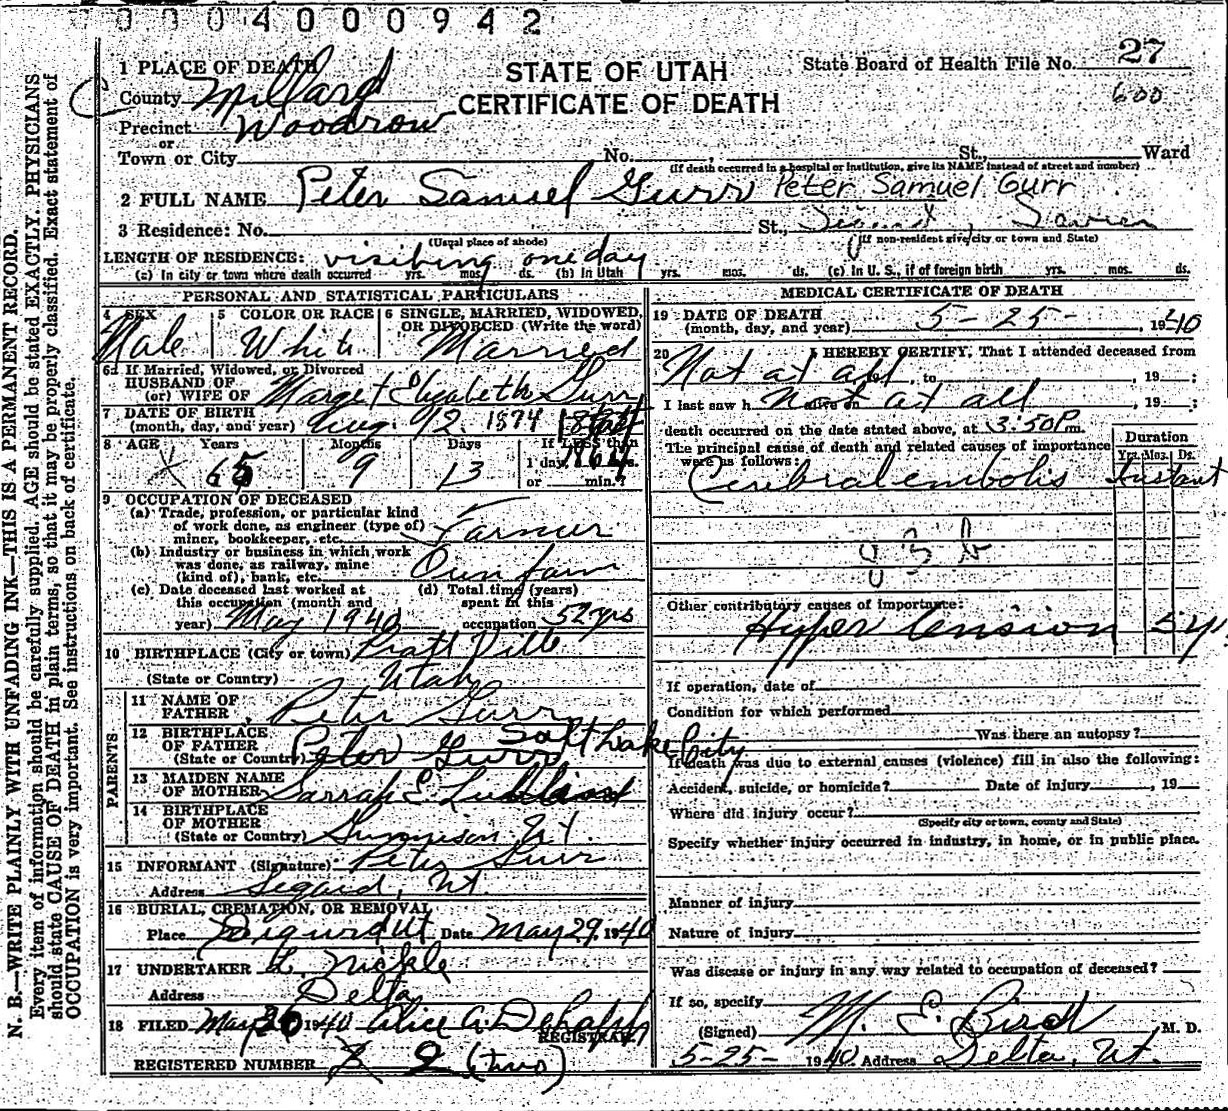 0 0 0 4 0 0 0 9 4 2
N. B.—WRITE PLAINLY WITH UNFADING INK—THIS IS A PERMANENT RECORD.
Every item of information should be carefully supplied. AGE should be stated EXACTLY. PHYSICIANS
should state CAUSE OF DEATH in plain terms, so that it may be properly classified. Exact statement of
OCCUPATION is very important. See instructions on back of certificate.
STATE OF UTAH
CERTIFICATE OF DEATH
State Board of Health File No. 27
600
1 PLACE OF DEATH
County Millard
Precinct Woodrow
or
Town or City No. , St., Ward
(If death occurred in a hospital or institution, give its NAME instead of street and number)
2 FULL NAME Peter Samuel Gurr Peter Samuel Gurr
3 Residence: No. St., Sigurd, Sevier
(Usual place of abode) (If non-resident give city or town and State)
LENGTH OF RESIDENCE: visiting one day
(a) In city or town where death occurred yrs. mos. ds. (b) In Utah yrs. mos. ds. (c) In U. S., if of foreign birth yrs. mos. ds.
PERSONAL AND STATISTICAL PARTICULARS
4 SEX 5 COLOR OR RACE 6 SINGLE, MARRIED, WIDOWED,
OR DIVORCED (Write the word)
Male White Married
6a If Married, Widowed, or Divorced
HUSBAND OF
(or) WIFE OF Marget Elizabeth Gurr
7 DATE OF BIRTH
(month, day, and year) Aug. 12. 1874
8 AGE Years Months Days If LESS than
1 day, hrs.
or min.?
65 9 13
9 OCCUPATION OF DECEASED
(a) Trade, profession, or particular kind
of work done, as engineer (type of)
miner, bookkeeper, etc. Farmer
(b) Industry or business in which work
was done, as railway, mine
(kind of), bank, etc. Own farm
(c) Date deceased last worked at
this occupation (month and
year) May 1940
(d) Total time (years)
spent in this
occupation 52 yrs
10 BIRTHPLACE (City or town) Pratt Ville
(State or Country) Utah
PARENTS
11 NAME OF
FATHER Peter Gurr
12 BIRTHPLACE
OF FATHER Salt Lake City
(State or Country) Peter Gurr
13 MAIDEN NAME
OF MOTHER Sarrah E.
14 BIRTHPLACE
OF MOTHER
(State or Country) Gunnison Ut.
15 INFORMANT (Signature) Peter Gurr
Address Segurd, Ut
16 BURIAL, CREMATION, OR REMOVAL
Place Sigurd Ut. Date May 29, 1940
17 UNDERTAKER L. Nickle
Address Delta
18 FILED May 30 1940 Alice A.
REGISTRAR
REGISTERED NUMBER 2 (two)
MEDICAL CERTIFICATE OF DEATH
19 DATE OF DEATH
(month, day, and year) 5-25-, 1940
20 I HEREBY CERTIFY, That I attended deceased from
Not at all, to , 19 ;
I last saw h alive on Not at all , 19 ;
death occurred on the date stated above, at 3:50 P.m.
The principal cause of death and related causes of importance
were as follows:
Duration
Yrs. Mos. Ds.
Cerebral embolis Instant
Other contributory causes of importance:
Hyper tension 5 y
If operation, date of
Condition for which performed
Was there an autopsy?
If death was due to external causes (violence) fill in also the following:
Accident, suicide, or homicide? Date of injury , 19
Where did injury occur?
(Specify city or town, county and State)
Specify whether injury occurred in industry, in home, or in public place.
Manner of injury
Nature of injury
Was disease or injury in any way related to occupation of deceased?
If so, specify
(Signed) M. E. Bird, M. D.
5-25- 1940 Address Delta, Ut.